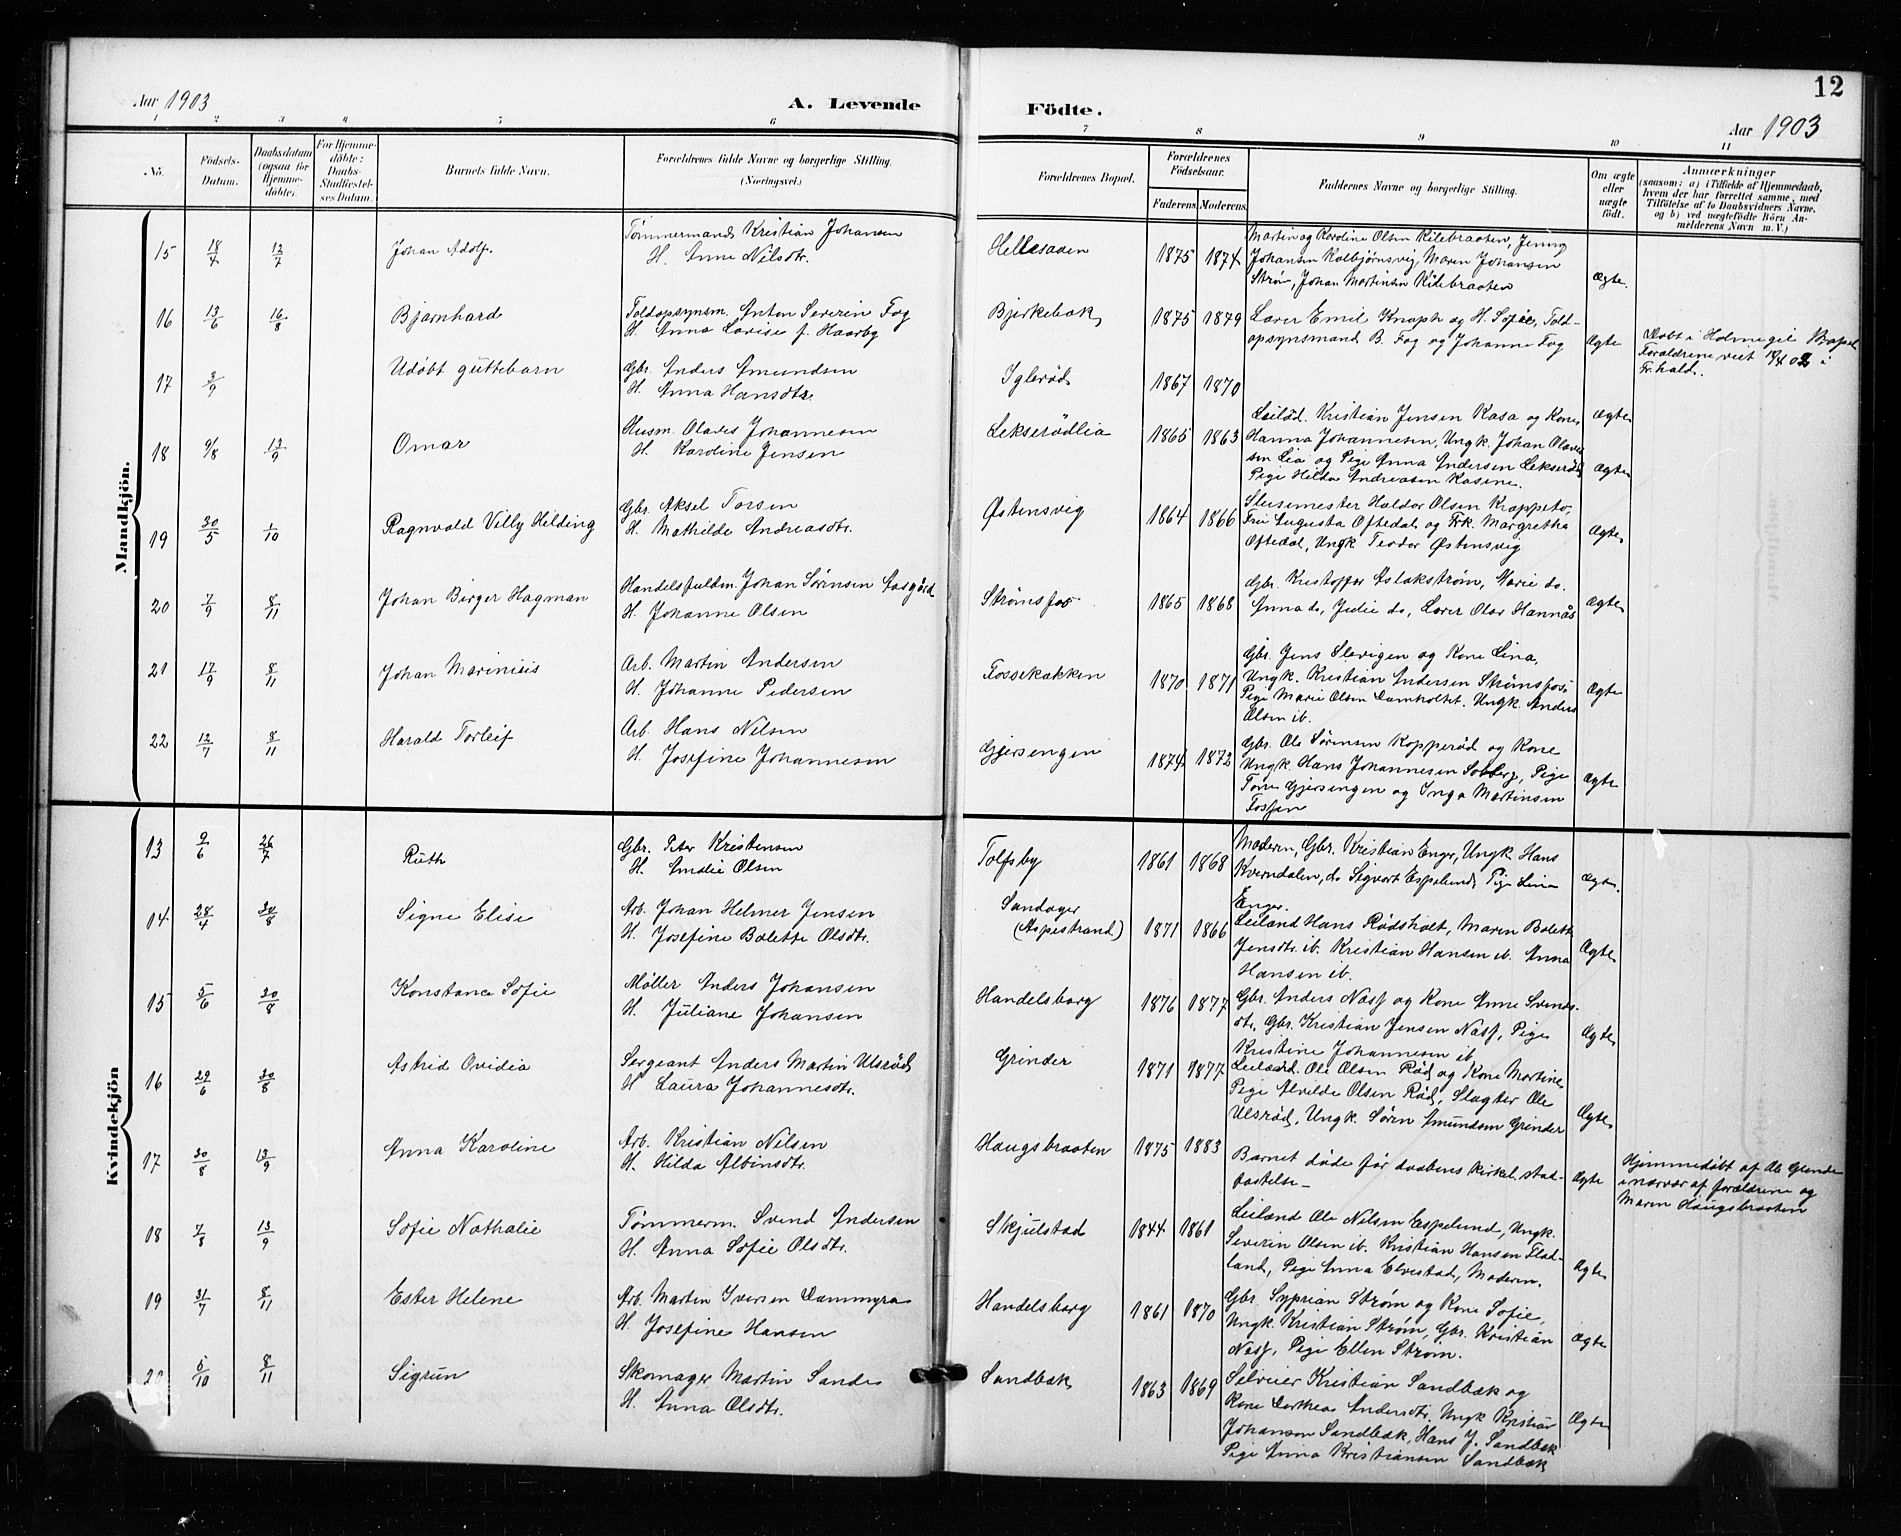 Aar 1903
A. Levende
Födte.
12
Aar 1903
1 2 3 4 5 6 7 8 9 10 11
No.
Födsels-Datum.
Daabsdatum (ogsaa for Hjemmedöbte).
For Hjemmedöbte: Daabs-Stadfæstelses Datum.
Barnets fulde Navn.
Forældrenes fulde Navne og borgerlige Stilling. (Næringsvei.)
Forældrenes Bopæl.
Forældrenes Födselsaar.
Faderens. Moderens.
Faddernes Navne og borgerlige Stilling.
Om ægte eller uægte födt.
Anmærkninger
(saasom: a) i Tilfælde af Hjemmedaab, hvem der har forrettet samme, med Tilföielse af to Daabsvidners Navne, og b) ved uægtefödte Börn Anmelderens Navn m. V.)
Mandkjön.
15 18/4 12/7 Johan Adolf.
Tømmermand Kristian Johansen
H. Anne Nilsdtr.
Hellesaaen 1875 1874
Martin og Karoline Olsen Kilebraaten, Jenny
Johansen Kolbjørnsvig, Maren Johansen
Strøm, Johan Martinsen Kilebraaten
Ægte.
16 13/6 16/8 Bjarnhard
Toldopsynsm. Anton Severin Fog
H. Anna Lovise f. Haarby
Bjerkebæk 1875 1879
Lærer Emil Knoph og H. Sofie, Told-
opsynsmand B. Fog og Johanne Fog
Ægte
Døbt i Holmegil
Forældrene viet i
Fr.hald.
17 3/9 Udøbt guttebarn
Gbr. Anders Amundsen
H. Anna Hansdtr.
Iglerød 1867 1870
Ægte
18 9/8 13/9 Omar
Husm. Olaves Johannesen
H. Karoline Jensen
Lekserødlia 1865 1863
Leilød. Kristian Jensen Kasa og Kone
Hanna Johannesen, Ungk. Johan Olave-
sen Lia og Pige Anna Andersen Lekserød
Pige Hilda Andreasen Kasene.
Ægte
19 30/5 1/10 Ragnvald Villy Hilding
Gbr. Aksel Torsen
H. Mathilde Andreasdtr.
Østensvig 1864 1866
Slusemester Haldor Olsen Krappeto,
Fru Augusta Oftedal og Frk. Margretha
Oftedal, Ungk Teodor Østensvig
Ægte
20 7/9 8/11 Johan Birger Hagman
Handelsfuldm. Johan Sørensen Aasgård
H. Johanne Olsen
Strømsfos 1865 1868
Gbr. Kristoffer Aslakstrøm, Marie do.
Anna do, Julie do, Lærer Olav Hannås
Ægte
21 17/9 8/11 Johan Marinius
Arb. Martin Andersen
H. Johanne Pedersen
Fossebakken 1870 1871
Gbr. Jens Slevigen og Kone Lina,
Ungk. Kristian Andersen Strømsfos
Pige Marie Olsen Damholtet. Ungk. Anders
Olsen ib.
Ægte
22 12/7 8/11 Harald Torleif
Arb. Hans Nilsen
H. Josefine Johannesen
Gjersengen 1874 1872
Gbr. Ole Sørensen Kopperød og Kone
Ungk. Hans Johannesen Solberg, Pige
Tone Gjersengen og Inga Martinsen
Fossen
Ægte
Kvindekjön
13 9/6 26/7 Ruth
Gbr. Peter Kristensen
H. Amalie Olsen
Tolfsby 1861 1868
Moderen, Gbr. Kristian Enger, Ungk. Hans
Kverndalen, do Sigvart Espelund, Pige Lina
Enger.
Ægte.
14 28/4 30/8 Signe Elise
Arb. Johan Helmer Jensen
H. Josefine Bolette Olsdtr.
Sandager
(Aspestrand) 1871 1866
Leiland Hans Rødsholt, Maren Bolett
Jensdtr. ib. Kristian Hansen ib. Anna
Hansen ib.
Ægte
15 5/6 30/8 Konstance Sofie
Møller Anders Johansen
H. Juliane Johansen
Handelsborg 1876 1877
Gbr. Anders Næss og Kone Anne Svends-
dtr. Gbr. Kristian Jensen Næss, Pige
Kristine Johannesen ib.
Ægte
16 29/6 30/8 Astrid Ovidia
Sergeant Anders Martin Ulsrød
H. Laura Johannesdtr.
Grinder 1871 1877
Leilænd. Ole Olsen Rød og Kone Martine
Pige Alvilde Olsen Rød, Slagter Ole
Ulsrød, Ungk. Sørn Amundsen Grinder
Ægte
17 30/8 13/9 Anna Karoline
Arb. Kristian Nilsen
H. Hilda Albinsdtr.
Haugsbraaten 1875 1883
Barnet døde før daabens kirkel. stad-
fæstelse –
Ægte
Hjemmedøbt af Ole Grinde
i nærvær af forældrene og
Maren Haugsbraaten
18 7/8 13/9 Sofie Nathalie
Tømmerm. Svend Andersen
H. Anna Sofie Olsdtr.
Skjulstad 1844 1861
Leilænd Ole Nilsen Espelund, Ungk.
Severin Olsen ib. Kristian Hansen Flad-
land, Pige Anna Elvestad, Moderen.
Ægte
19 31/7 8/11 Ester Helene
Arb. Martin Iversen Dammyra
H. Josefine Hansen
Handelsborg 1861 1870
Gbr. Syprian Strøm og Kone Sofie,
Ungk. Kristian Strøm, Gbr. Kristian
Næss, Pige Ellen Strøm.
Ægte
20 6/10 8/11 Sigrun
Skomager Martin Sande
H. Anna Olsdtr.
Sandbæk 1863 1869
Selveier Kristian Sandbæk og
Kone Dorthea Andersdtr. Ungk Kristian
Johansen Sandbæk, Hans J. Sandbæk
Pige Anna Kristiansen Sandbæk
Ægte